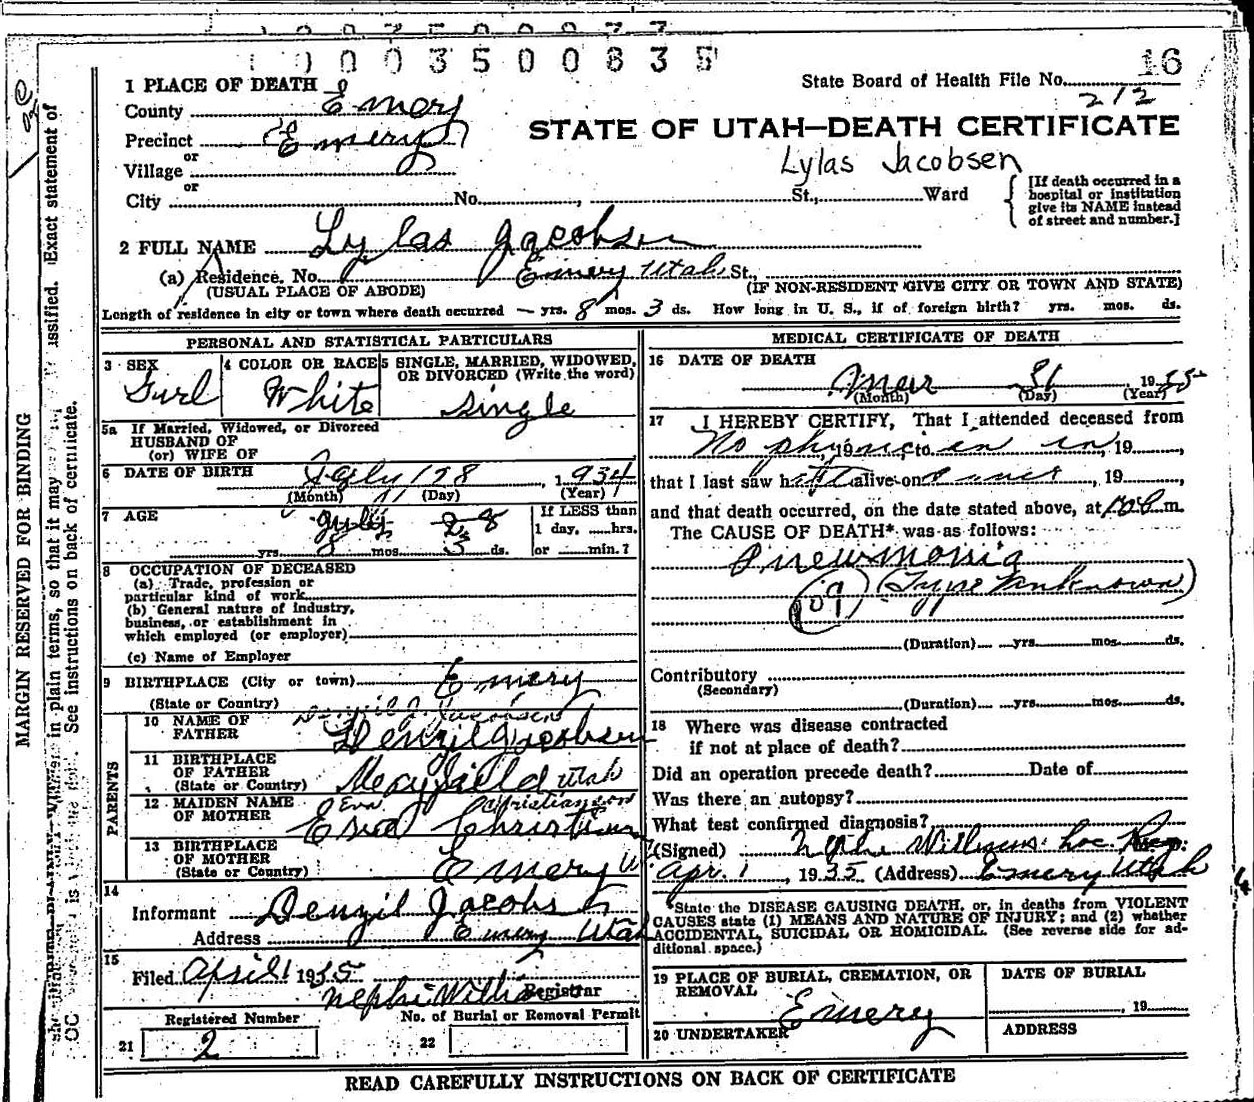 0003500835
16
1 PLACE OF DEATH
State Board of Health File No.
212
County Emery
Precinct Emery
STATE OF UTAH—DEATH CERTIFICATE
or
Village
Lylas Jacobsen
or
City No. , St., Ward
[If death occurred in a hospital or institution give its NAME instead of street and number.]
2 FULL NAME Lylas Jacobsen
(a) Residence. No. Emery Utah St.,
(USUAL PLACE OF ABODE) (IF NON-RESIDENT GIVE CITY OR TOWN AND STATE)
Length of residence in city or town where death occurred — yrs. 8 mos. 3 ds. How long in U. S., if of foreign birth? yrs. mos. ds.
MARGIN RESERVED FOR BINDING
in plain terms, so that it may
ssified. Exact statement of
See instructions on back of certificate.
PERSONAL AND STATISTICAL PARTICULARS
3 SEX
Gurl
4 COLOR OR RACE
White
5 SINGLE, MARRIED, WIDOWED,
OR DIVORCED (Write the word)
single
5a If Married, Widowed, or Divorced
HUSBAND OF
(or) WIFE OF
6 DATE OF BIRTH 28, 1934
(Month) (Day) (Year)
7 AGE
July 28
8 yrs. mos. 3 ds.
If LESS than
1 day, hrs.
or min.?
8 OCCUPATION OF DECEASED
(a) Trade, profession or
particular kind of work
(b) General nature of industry,
business, or establishment in
which employed (or employer)
(c) Name of Employer
9 BIRTHPLACE (City or town) Emery
(State or Country)
PARENTS
10 NAME OF
FATHER
Denzil J. Jacobsen
Denzil Jacobsen
11 BIRTHPLACE
OF FATHER
(State or Country) Mayfield Utah
12 MAIDEN NAME
OF MOTHER
Eva Christianson
13 BIRTHPLACE
OF MOTHER
(State or Country) Emery U
14
Informant Denzil Jacobsen
Address Emery Utah
15
Filed April 1 1935
Nephi Williams Registrar
Registered Number
21 2
No. of Burial or Removal Permit
22
MEDICAL CERTIFICATE OF DEATH
16 DATE OF DEATH
Mar 31, 1935
(Month) (Day) (Year)
17 I HEREBY CERTIFY, That I attended deceased from
No physician in, 19
that I last saw h alive on, 19,
and that death occurred, on the date stated above, at m.
The CAUSE OF DEATH* was as follows:
Pneumonia
109 (Type Unknown)
(Duration) yrs. mos. ds.
Contributory
(Secondary)
(Duration) yrs. mos. ds.
18 Where was disease contracted
if not at place of death?
Did an operation precede death? Date of
Was there an autopsy?
What test confirmed diagnosis?
(Signed) Nephi Williams Loc Reg.
Apr. 1, 1935 (Address) Emery Utah
*State the DISEASE CAUSING DEATH, or, in deaths from VIOLENT
CAUSES state (1) MEANS AND NATURE OF INJURY; and (2) whether
ACCIDENTAL, SUICIDAL OR HOMICIDAL. (See reverse side for ad-
ditional space.)
19 PLACE OF BURIAL, CREMATION, OR
REMOVAL
Emery
DATE OF BURIAL
19
20 UNDERTAKER
ADDRESS
READ CAREFULLY INSTRUCTIONS ON BACK OF CERTIFICATE